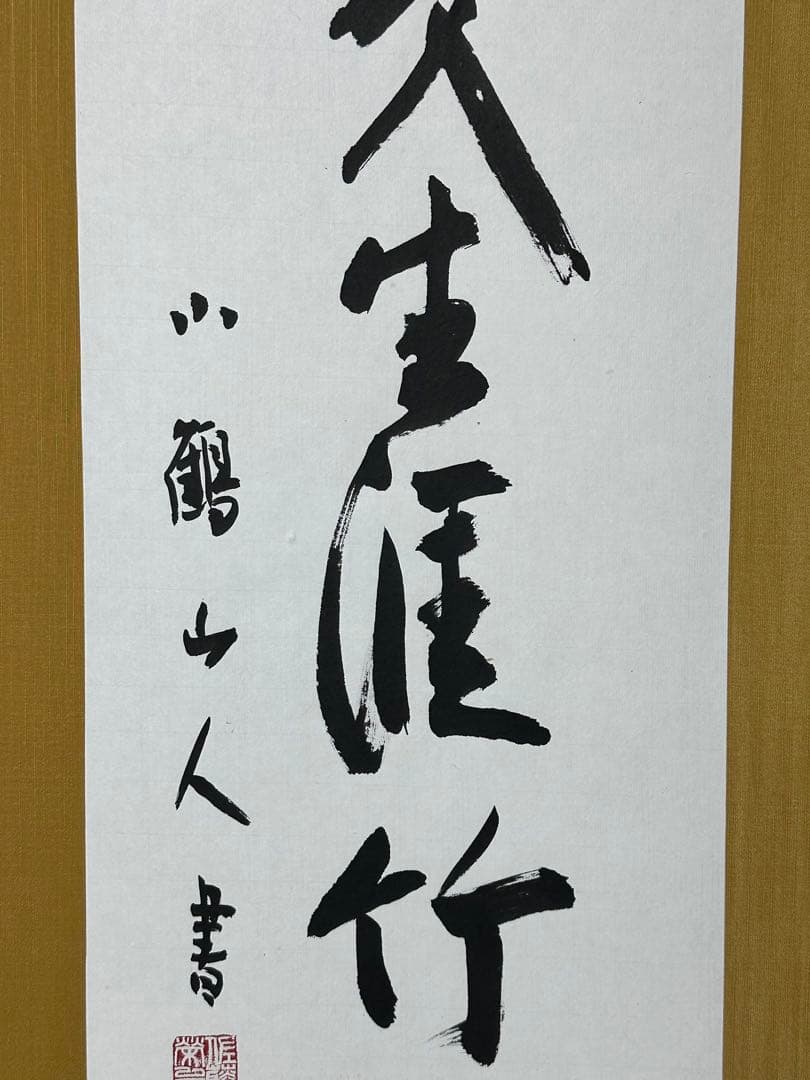 生涯竹
小鶴山人書